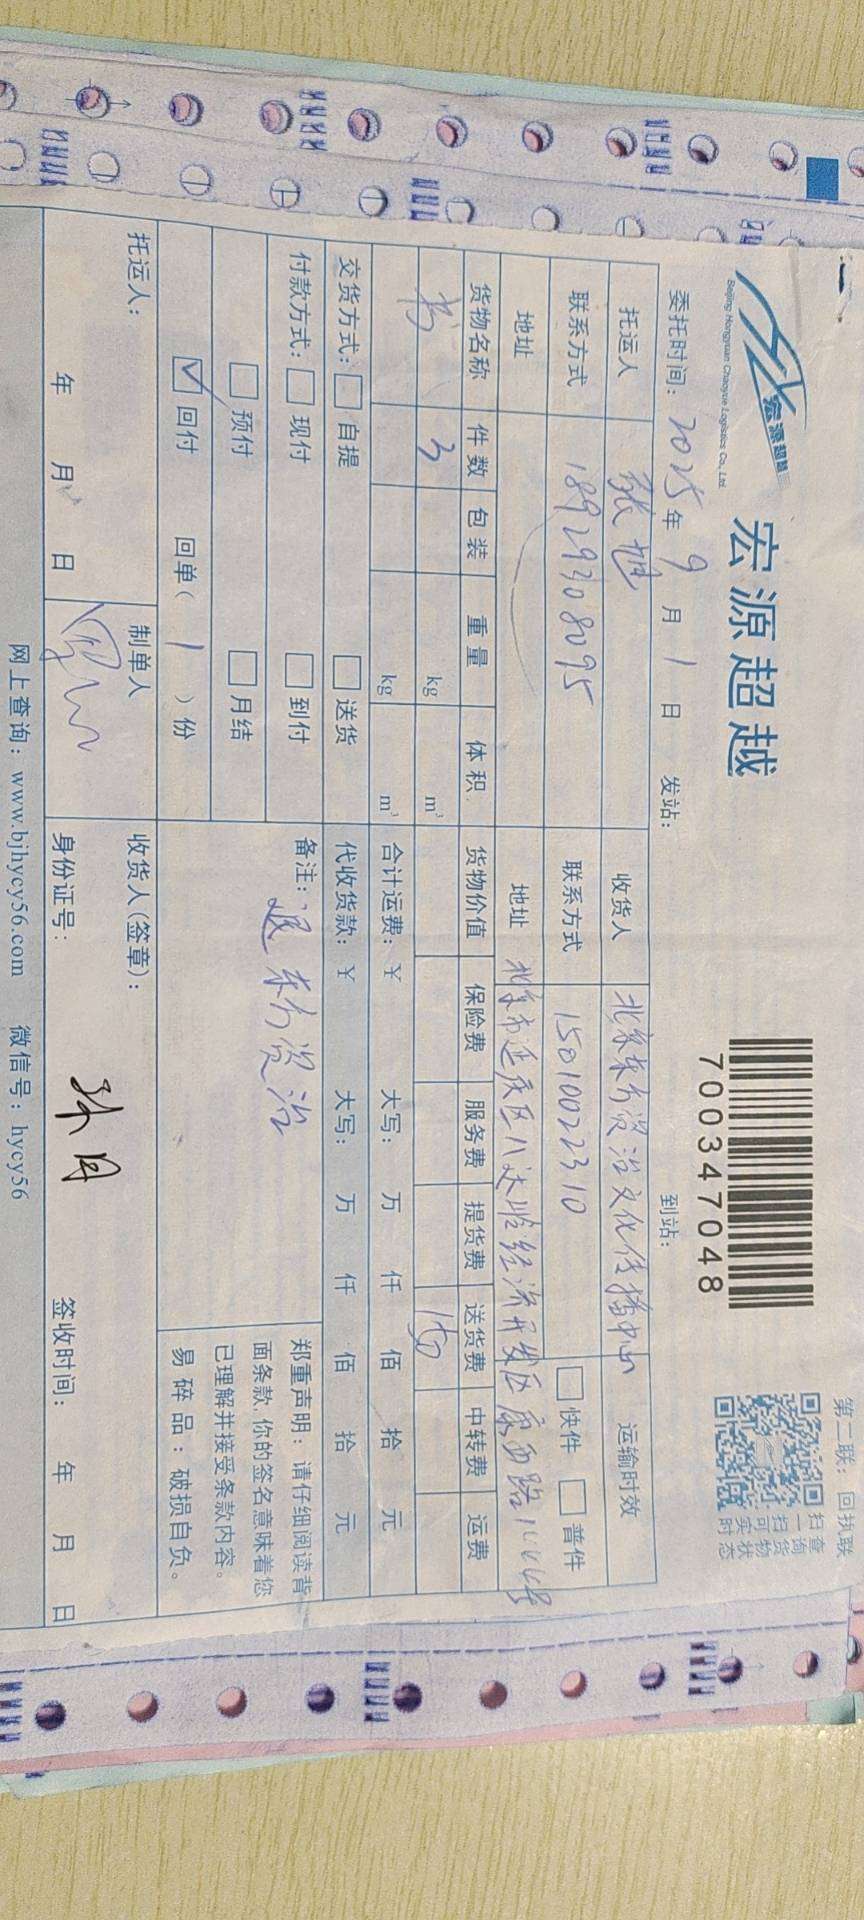 第二联：回执联
宏源超越
Beijing Hongyuan Chaoyue Logistics Co., Ltd.
宏源超越
700347048
扫一扫可实时
查询货物状态
委托时间：2025年9月1日 发站： 到站：
托运人 张旭 收货人 北京东方资治文化传播中心 运输时效
联系方式 18929308095 联系方式 15010022310 快件 普件
地址 地址 北京市延庆区八达岭经济开发区康西路1444号
货物名称 件数 包装 重量 体积 货物价值 保险费 服务费 提货费 送货费 中转费 运费
书 3 kg m³ 150
kg m³ 合计运费：￥ 大写： 万 仟 佰 拾 元
交货方式： 自提 送货 代收货款：￥ 大写： 万 仟 佰 拾 元
付款方式： 现付 到付 备注：退东方资治
预付 月结
回付 回单（1）份
郑重声明：请仔细阅读背
面条款，你的签名意味着您
已理解并接受条款内容。
易碎品：破损自负。
托运人： 制单人 收货人(签章)：
年 月 日 身份证号： 签收时间： 年 月 日
网上查询：www.bjhycy56.com 微信号：hycy56